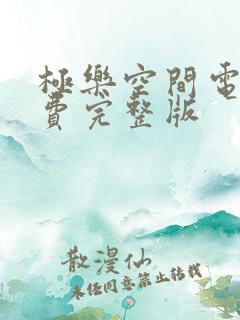 極樂空間電
費完整版
散漫仙
未经同意禁止转载